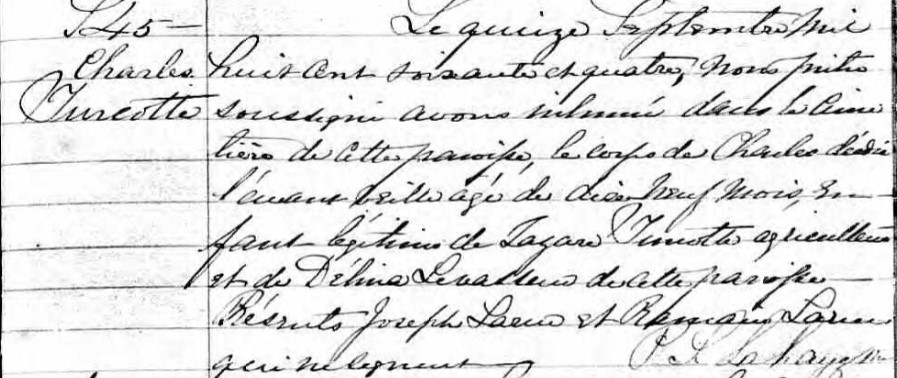 S 45 — Le quinze Septembre mil
Charles huit cent soixante et quatre, nous prêtre
Turcotte soussigné avons inhumé dans le Cime
tière de cette paroisse, le corps de Charles décédé
l'avant veille agé de dix neuf mois, En
fant légitime de Lazare Turcotte agriculteur
et de Délina Levasseur de cette paroisse
Présents Joseph Larue et Larue
qui ne signent